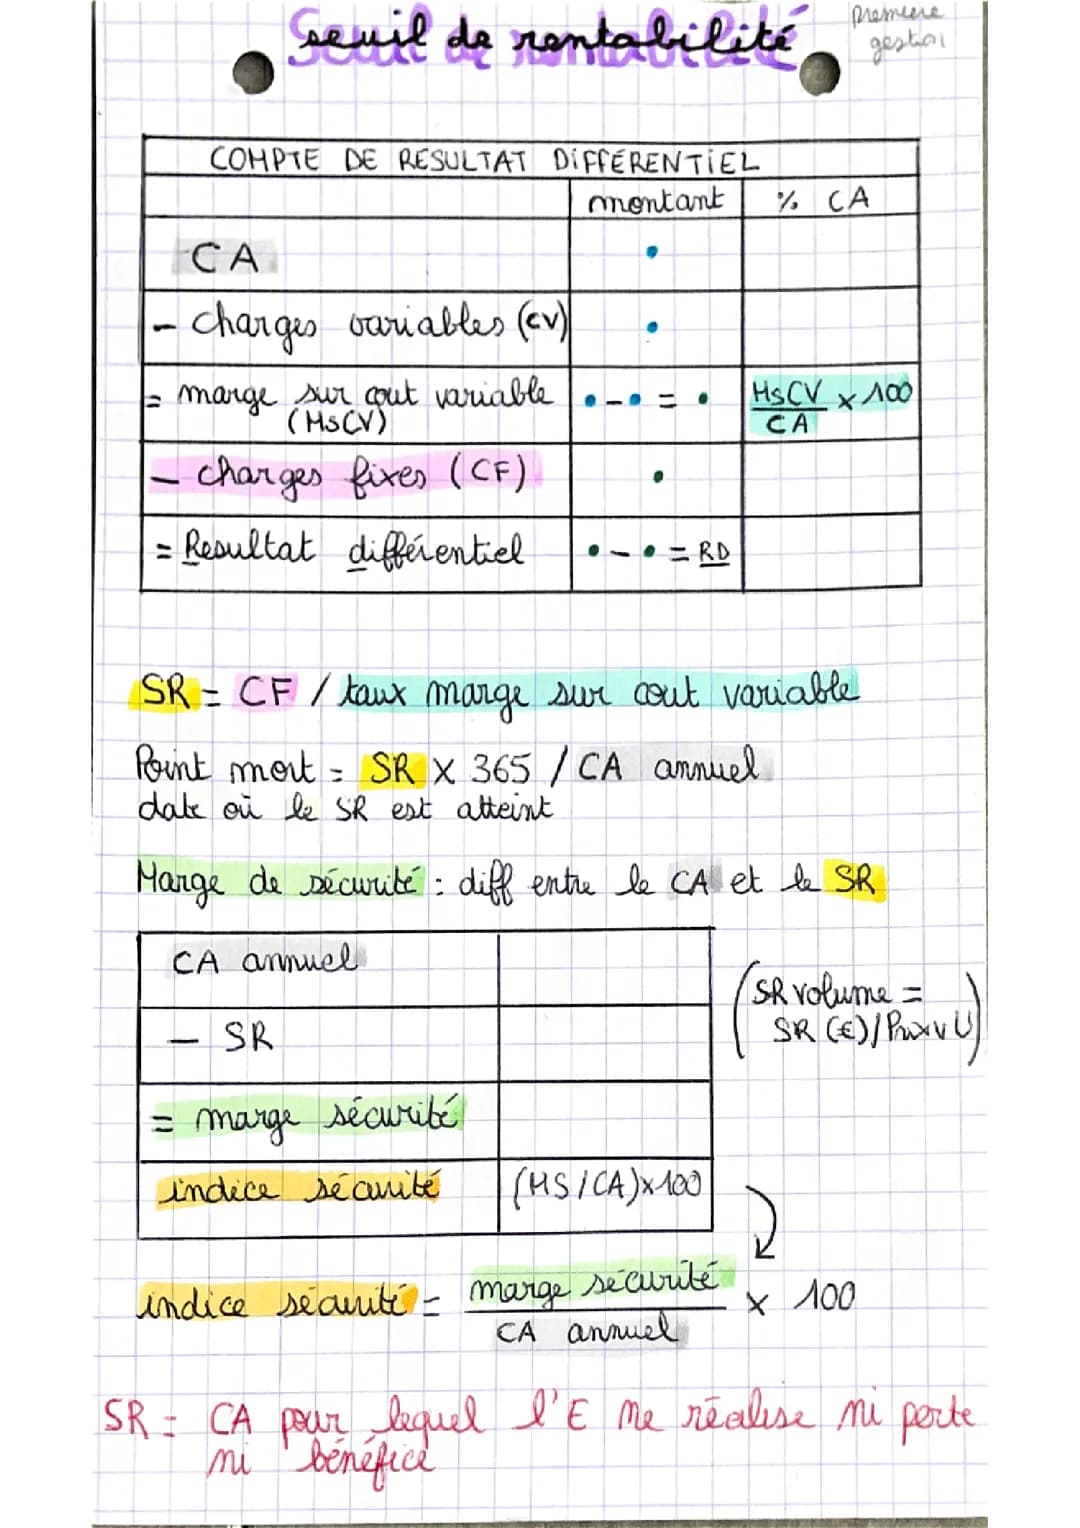 seuil de rentabilité
première
gestion
COMPTE DE RESULTAT DIFFÉRENTIEL
montant % CA
CA •
- charges variables (CV) •
= marge sur cout variable •-• = • MsCV × 100
(MsCV) CA
- charges fixes (CF) •
= Resultat différentiel •-• = RD
SR = CF / taux marge sur cout variable
Point mort = SR X 365 / CA annuel
date où le SR est atteint
Marge de sécurité : diff entre le CA et le SR
CA annuel
(SR volume =
- SR SR (€)/Prix v U)
= marge sécurité
indice sécurité (MS/CA)×100
indice sécurité = marge sécurité × 100
CA annuel
SR = CA pour lequel l'E ne réalise ni perte
ni bénéfice